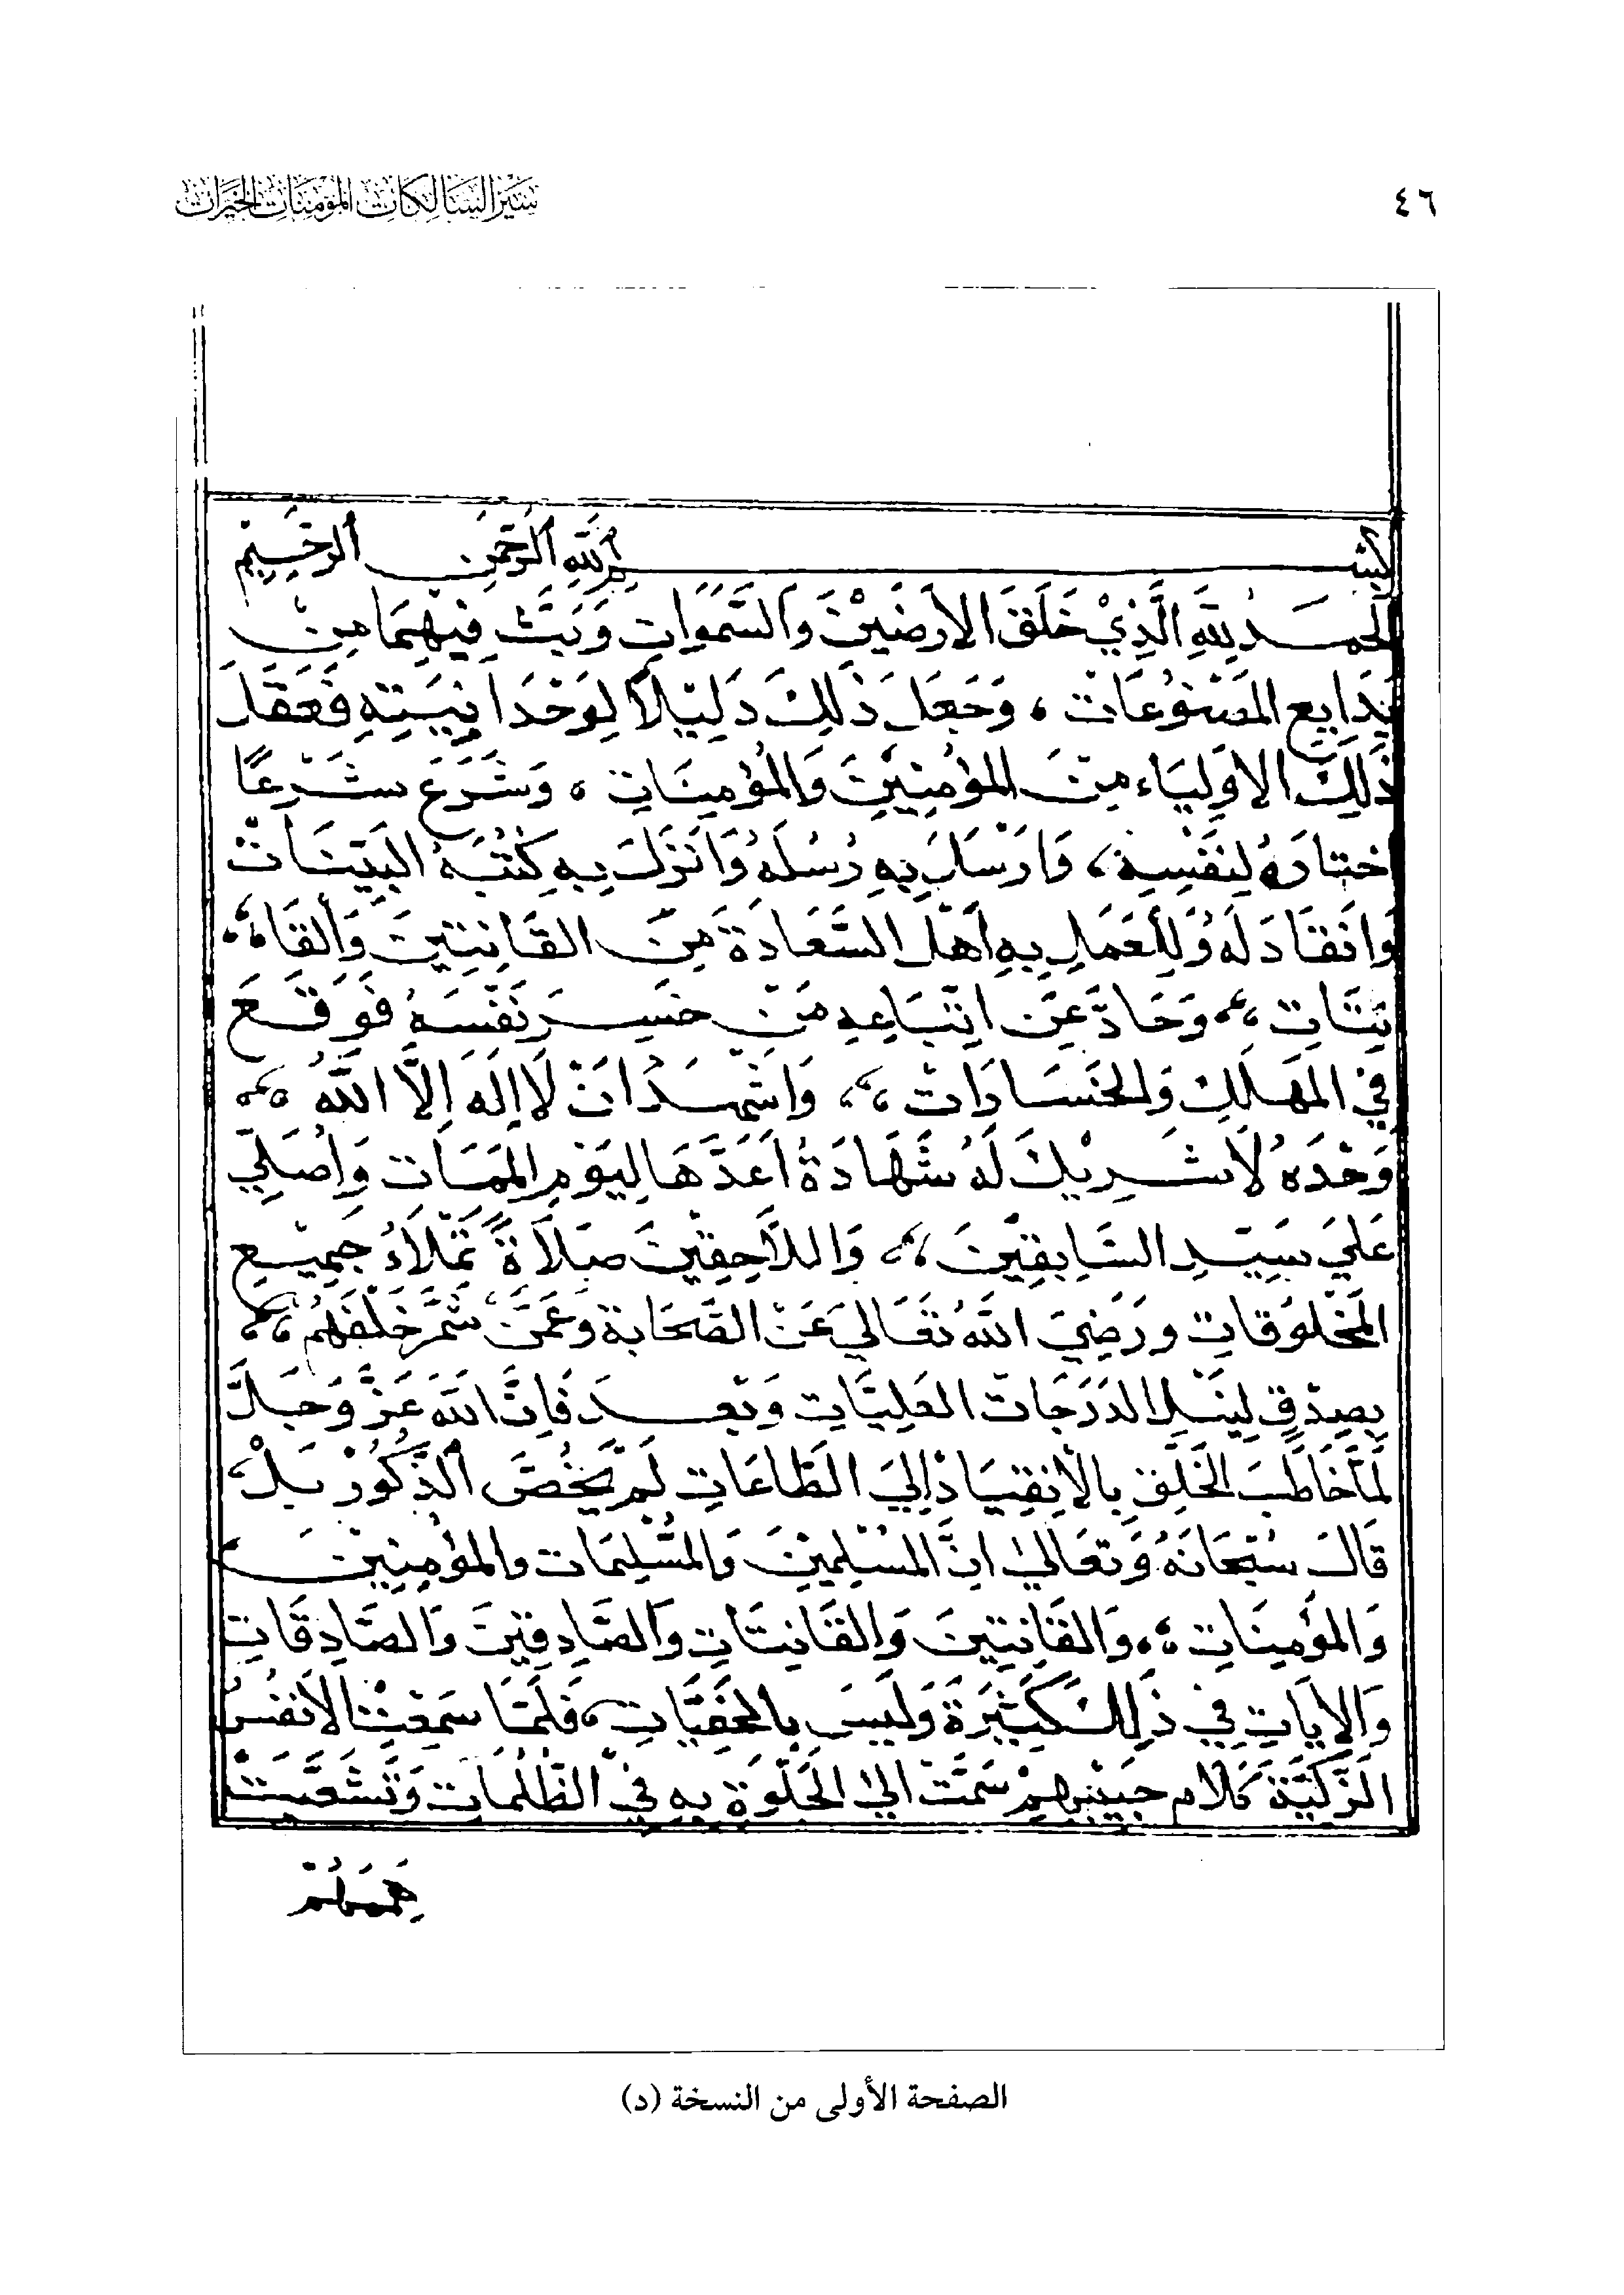 ٤٦
سير السالكات المؤمنات الخيرات
بسم الله الرحمن الرحيم
الحمد لله الذي خلق الارضين والسموات وبث فيهما من
بدايع المصنوعات، وجعل ذلك دليلا لوحدانيته فعقل
ذلك الاولياء من المؤمنين والمؤمنات، وشرع شرعًا
اختاره لنفسه، وارسل به رسله وانزل به كتبه البينات
وانقاد له وللعمل به اهل السعادة من القانتين والقا
نتات، وحاد عن اتباعه من خسر نفسه فوقع
في المهلك والخسارات، واشهد ان لا اله الا الله
وحده لا شريك له شهادة اعدها ليوم الممات واصلي
علي سيد السابقين، واللاحقين صلاة تملاء جميع
المخلوقات ورضي الله تعالي عن الصحابة وعمن شمر خلفهم
بصدق لينل الدرجات العليات وبعد فان الله عز وجل
لما خاطب الخلق بالانقياد الي الطاعات لم يخص الذكور بل
قال سبحانه وتعالي ان المسلمين والمسلمات والمؤمنين
والمؤمنات، والقانتين والقانتات والصادقين والصادقات
والايات في ذلك كثيرة وليس بالخفيات، فلما سمعت الانفس
الزكية كلام حبيبهم سمت الي الخلوة به في الظلمات وتشعبت
هممهم
الصفحة الأولى من النسخة (د)